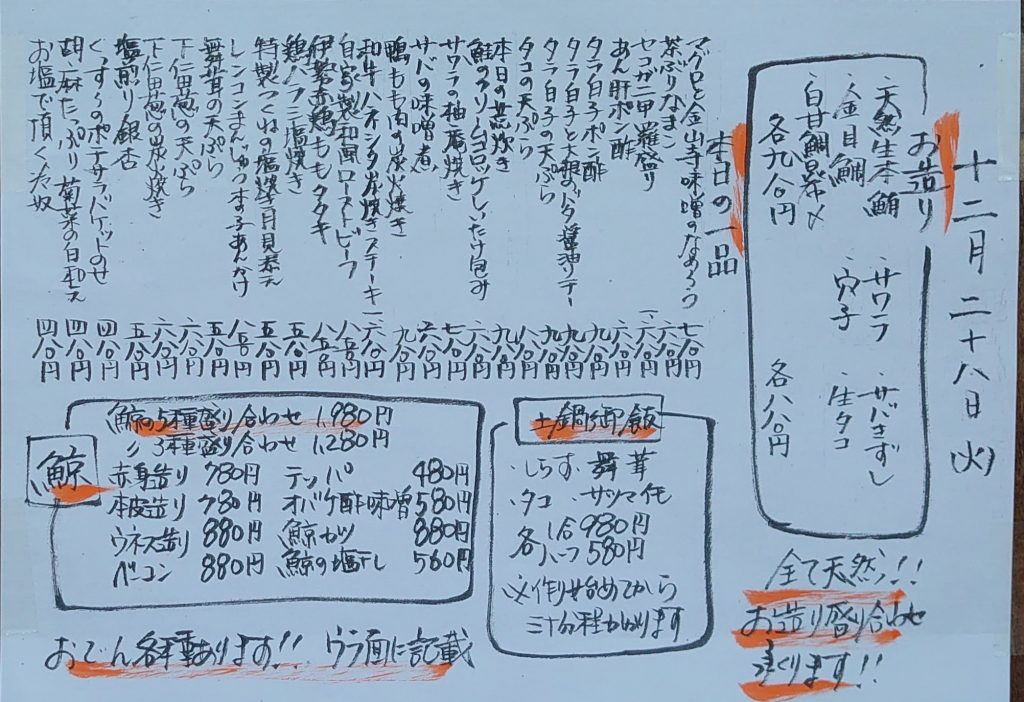 十二月二十八日(火)
お造り
・天然生本鮪
・金目鯛
・白甘鯛昆布〆
各九八〇円
・サワラ
・穴子
・サバきずし
・生タコ
各八八〇円
全て天然!!
お造り盛り合わせ
承ります!!
本日の一品
マグロと金山寺味噌のなめろう 七八〇円
茶ぶりなまこ 六八〇円
セコガニ甲羅盛り
あん肝ポン酢
タラ白子ポン酢
タラ白子と大根のバタ醤油ソテー
タラ白子の天ぷら
タコの天ぷら
本日の煮炊き
鮭のクリームコロッケしいたけ包み
サワラの柚庵焼き
サバの味噌煮
鴨もも肉の炭火焼き
和牛ハネシタ炭焼きステーキ
自家製和風ローストビーフ
伊勢赤鶏ももタタキ
鶏ハラミ塩焼き 五八〇円
特製つくねの塩焼き月見添え 五八〇円
レンコンまんじゅう 本子あんかけ
舞茸の天ぷら 五八〇円
下仁田葱の天ぷら 六八〇円
下仁田葱の炭火焼き
塩煎り銀杏
ぐっするのポテサラバゲットのせ 四八〇円
胡麻たっぷり 菊菜の白和え 四八〇円
お塩で頂くたぬ奴 四八〇円
鯨
鯨の5種盛り合わせ 1,980円
〃 3種盛り合わせ 1,280円
赤身造り 780円 テッパ 480円
本皮造り 780円 オバケ酢味噌 580円
ウネス造り 880円 鯨カツ 880円
ベーコン 880円 鯨の塩干し 560円
土鍋御飯
・しらす ・舞茸
・タコ ・サツマイモ
各 1合 980円
ハーフ 580円
※作り始めてから
三十分程かかります
おでん各種あります!! ウラ面に記載